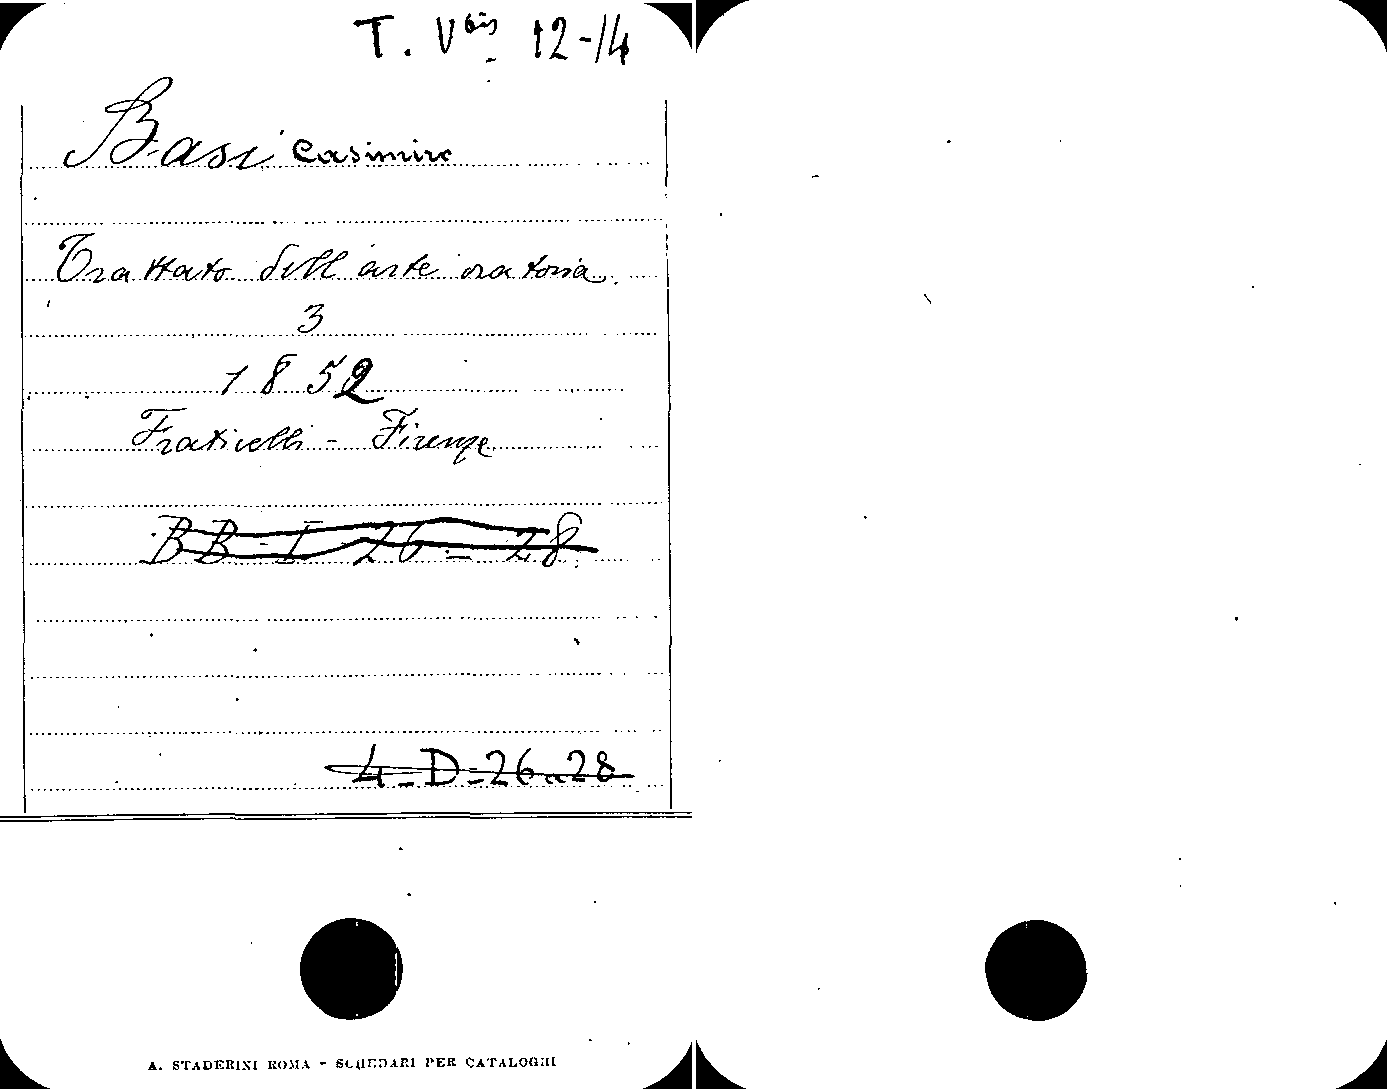 T. V bis 12-14
Basi Casimiro
Trattato dell'arte oratoria
3
1852
Fraticelli - Firenze
BB-I-26-28
4-D-26 a 28
A. STADERINI ROMA - SCHEDARI PER CATALOGHI